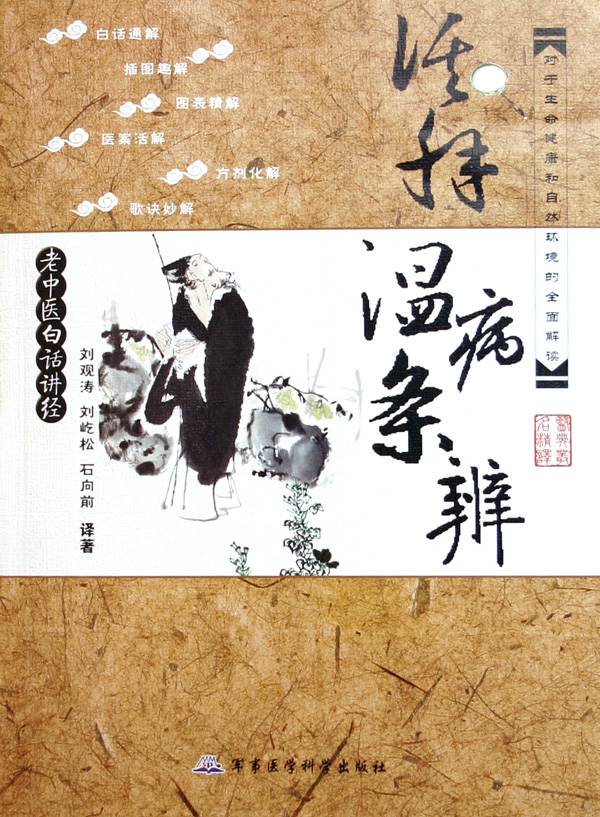 白话通解
插图趣解
图表精解
医案活解
方剂化解
歌诀妙解
对于生命健康和自然环境的全面解读
温病条辨
老中医白话讲经
刘观涛 刘屹松 石向前 译著
军事医学科学出版社